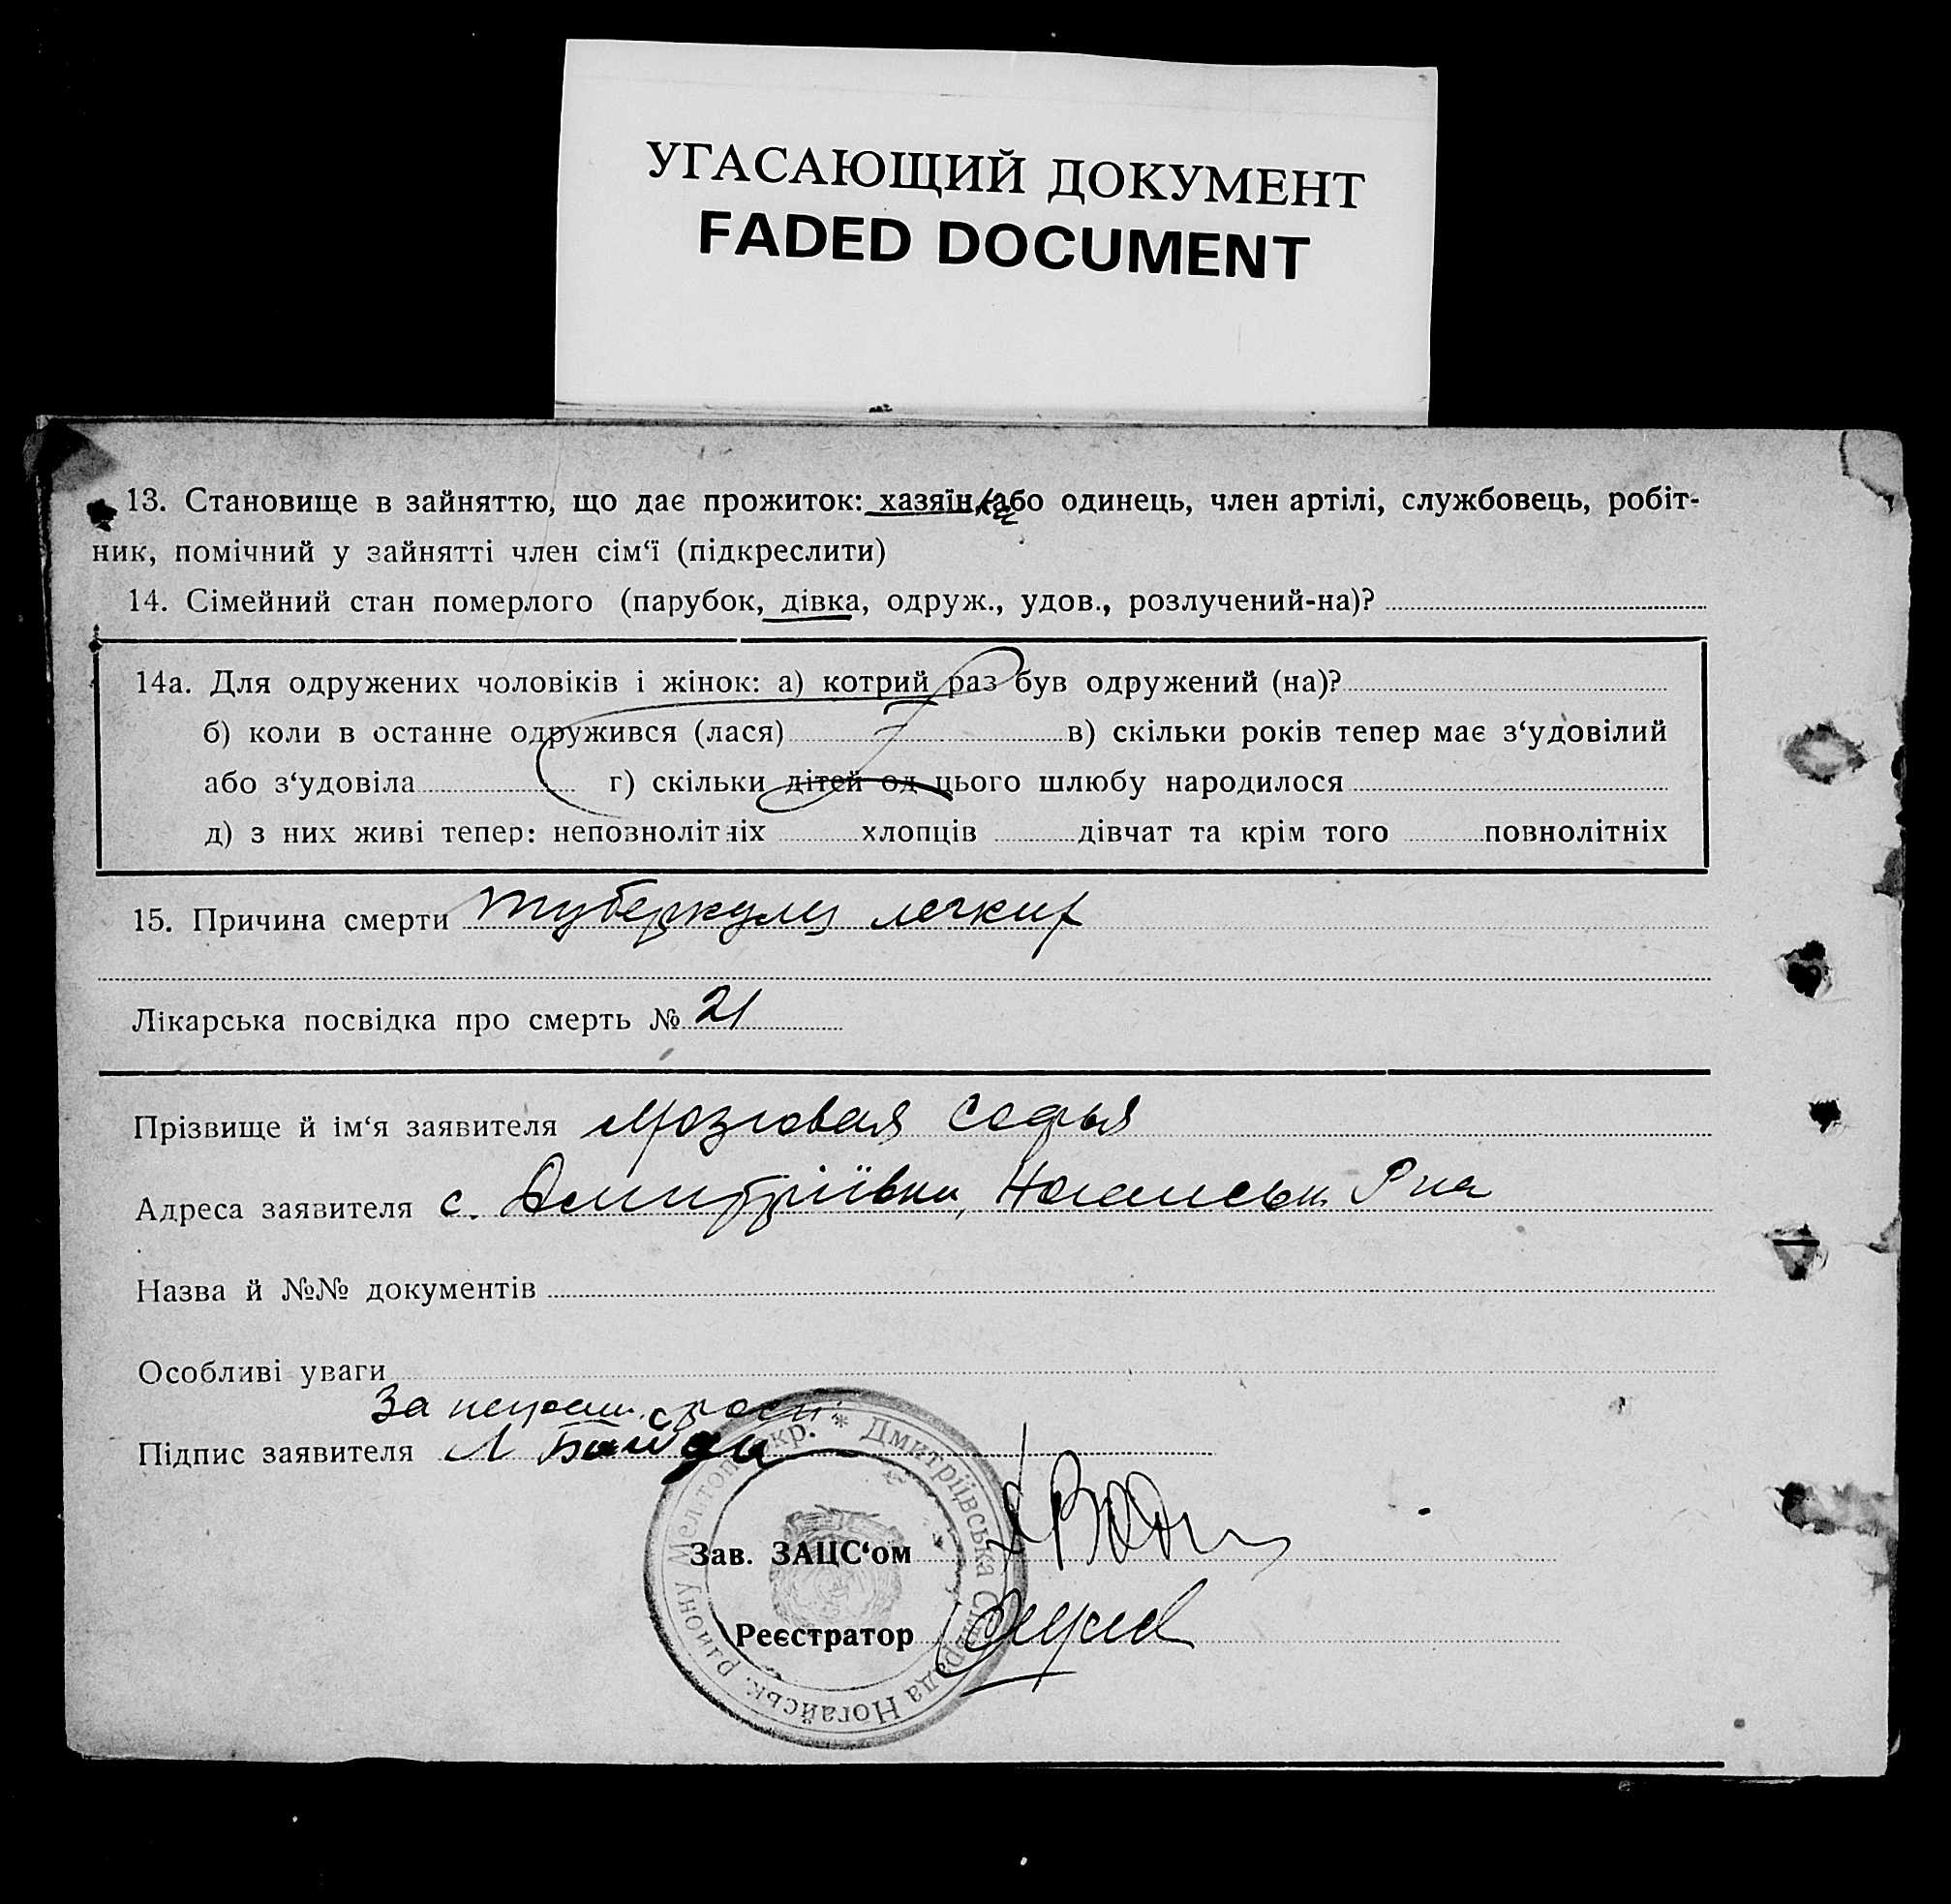 УГАСАЮЩИЙ ДОКУМЕНТ
FADED DOCUMENT
13. Становище в зайняттю, що дає прожиток: хазяїнка або одинець, член артілі, службовець, робіт-
ник, помічний у зайнятті член сім‘ї (підкреслити)
14. Сімейний стан померлого (парубок, дівка, одруж., удов., розлучений-на)?
14а. Для одружених чоловіків і жінок: а) котрий раз був одружений (на)?
б) коли в останне одружився (лася) в) скільки років тепер має з‘удовілий
або з‘удовіла г) скільки дітей од цього шлюбу народилося
д) з них живі тепер: неповнолітніх хлопців дівчат та крім того повнолітніх
15. Причина смерти туберкулез легких
Лікарська посвідка про смерть № 21
Прізвище й ім‘я заявителя Мозговая Софья
Адреса заявителя с. Дмитріївка, Ногайськ. Р-на
Назва й №№ документів
Особливі уваги
За
Підпис заявителя Л
Дмитріївська Сільрада Ногайськ. району Мелітоп. окр. *
Зав. ЗАЦС‘ом
Реєстратор